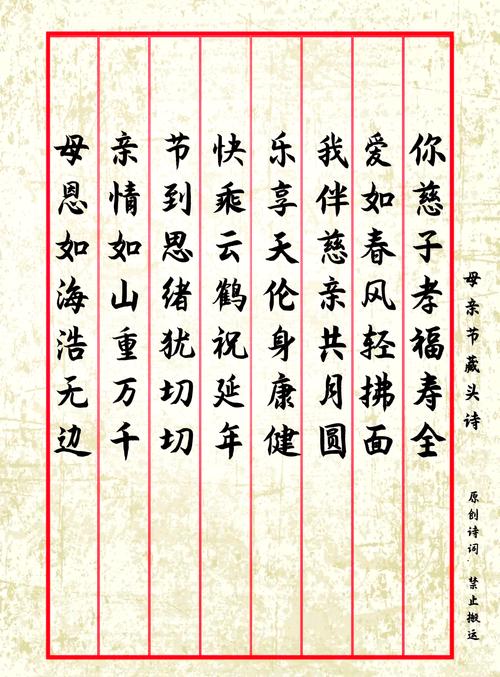 母亲节藏头诗
母恩如海浩无边
亲情如山重万千
节到思绪犹切切
快乘云鹤祝延年
乐享天伦身康健
我伴慈亲共月圆
爱如春风轻拂面
你慈子孝福寿全
原创诗词.禁止搬运